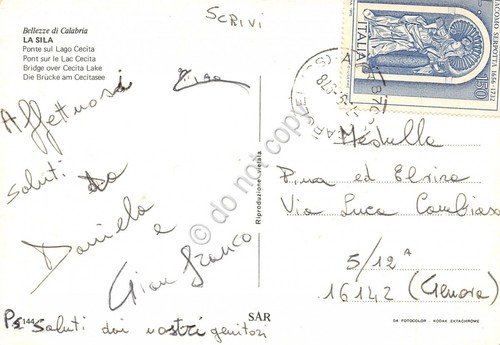 SCRIVI
Bellezze di Calabria
LA SILA
Ponte sul Lago Cecita
Pont sur le Lac Cecita
Bridge over Cecita Lake
Die Brücke am Cecitasee
Ciao
Affettuosi
saluti da
Daniela e
Gian Franco
Ps saluti dai nostri genitori
144
Riproduzione vietata
© do not copy
SAR
ITALIA
150
GIACOMO SERPOTTA 1656-1732
Medulla
Pina ed Elvira
Via Luca Cambiaso
5/12 A
16142 (Genova)
DA FOTOCOLOR - KODAK EKTACHROME